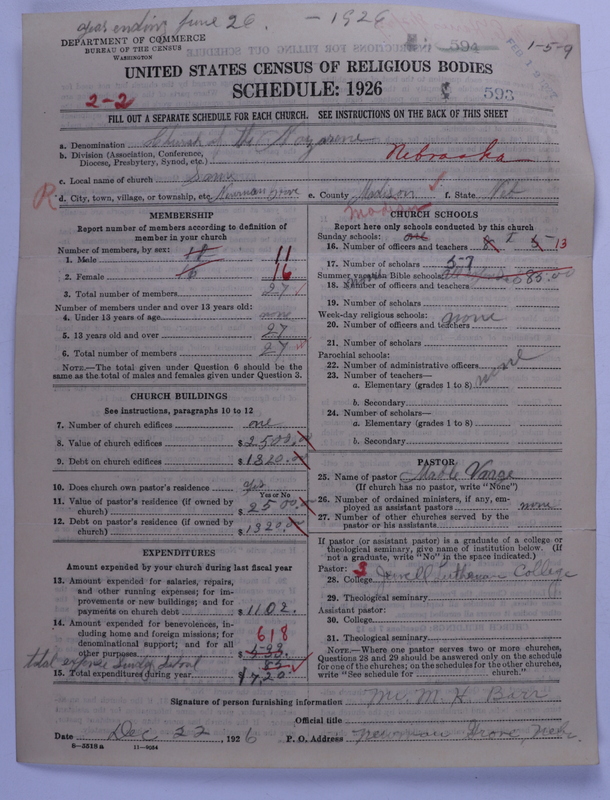 year ending June 26. - 1926
DEPARTMENT OF COMMERCE
BUREAU OF THE CENSUS
WASHINGTON
594
1-5-9
UNITED STATES CENSUS OF RELIGIOUS BODIES
SCHEDULE: 1926
2-2
593
FILL OUT A SEPARATE SCHEDULE FOR EACH CHURCH. SEE INSTRUCTIONS ON THE BACK OF THIS SHEET
a. Denomination Church of the Nazarene
b. Division (Association, Conference, Diocese, Presbytery, Synod, etc.) Nebraska
c. Local name of church Same
R d. City, town, village, or township, etc. Newman Grove e. County Madison f. State Neb
MEMBERSHIP
Report number of members according to definition of member in your church
Number of members, by sex:
1. Male 11
2. Female 16
3. Total number of members 27
Number of members under and over 13 years old:
4. Under 13 years of age none
5. 13 years old and over 27
6. Total number of members 27
NOTE.—The total given under Question 6 should be the same as the total of males and females given under Question 3.
CHURCH BUILDINGS
See instructions, paragraphs 10 to 12
7. Number of church edifices one
8. Value of church edifices $2500.00
9. Debt on church edifices $1320.00
10. Does church own pastor's residence yes
Yes or No
11. Value of pastor's residence (if owned by church) $2500.00
12. Debt on pastor's residence (if owned by church) $1320.00
EXPENDITURES
Amount expended by your church during last fiscal year
13. Amount expended for salaries, repairs, and other running expenses; for improvements or new buildings; and for payments on church debt $1102.
14. Amount expended for benevolences, including home and foreign missions; for denominational support; and for all other purposes 618
total expense Sunday School 85
15. Total expenditures during year $1720.
CHURCH SCHOOLS
Report here only schools conducted by this church
Sunday schools: one
16. Number of officers and teachers 8 5 13
17. Number of scholars 57
Summer vacation Bible schools: $85.00
18. Number of officers and teachers
19. Number of scholars
Week-day religious schools: none
20. Number of officers and teachers
21. Number of scholars
Parochial schools:
22. Number of administrative officers none
23. Number of teachers—
a. Elementary (grades 1 to 8)
b. Secondary
24. Number of scholars—
a. Elementary (grades 1 to 8)
b. Secondary
PASTOR
25. Name of pastor Mable Varge
(If church has no pastor, write "None")
26. Number of ordained ministers, if any, employed as assistant pastors none
27. Number of other churches served by the pastor or his assistants
If pastor (or assistant pastor) is a graduate of a college or theological seminary, give name of institution below. (If not a graduate, write "No" in the space indicated.)
Pastor:
28. College Jewell Lutheran College
29. Theological seminary
Assistant pastor:
30. College
31. Theological seminary
NOTE.—Where one pastor serves two or more churches, Questions 28 and 29 should be answered only on the schedule for one of the churches; on the schedules for the other churches, write "See schedule for church."
Signature of person furnishing information Mr. M. H Barr
Official title
Date Dec 22, 1926 P. O. Address Newman Grove, Nebr.
8-5518 a 11-9084